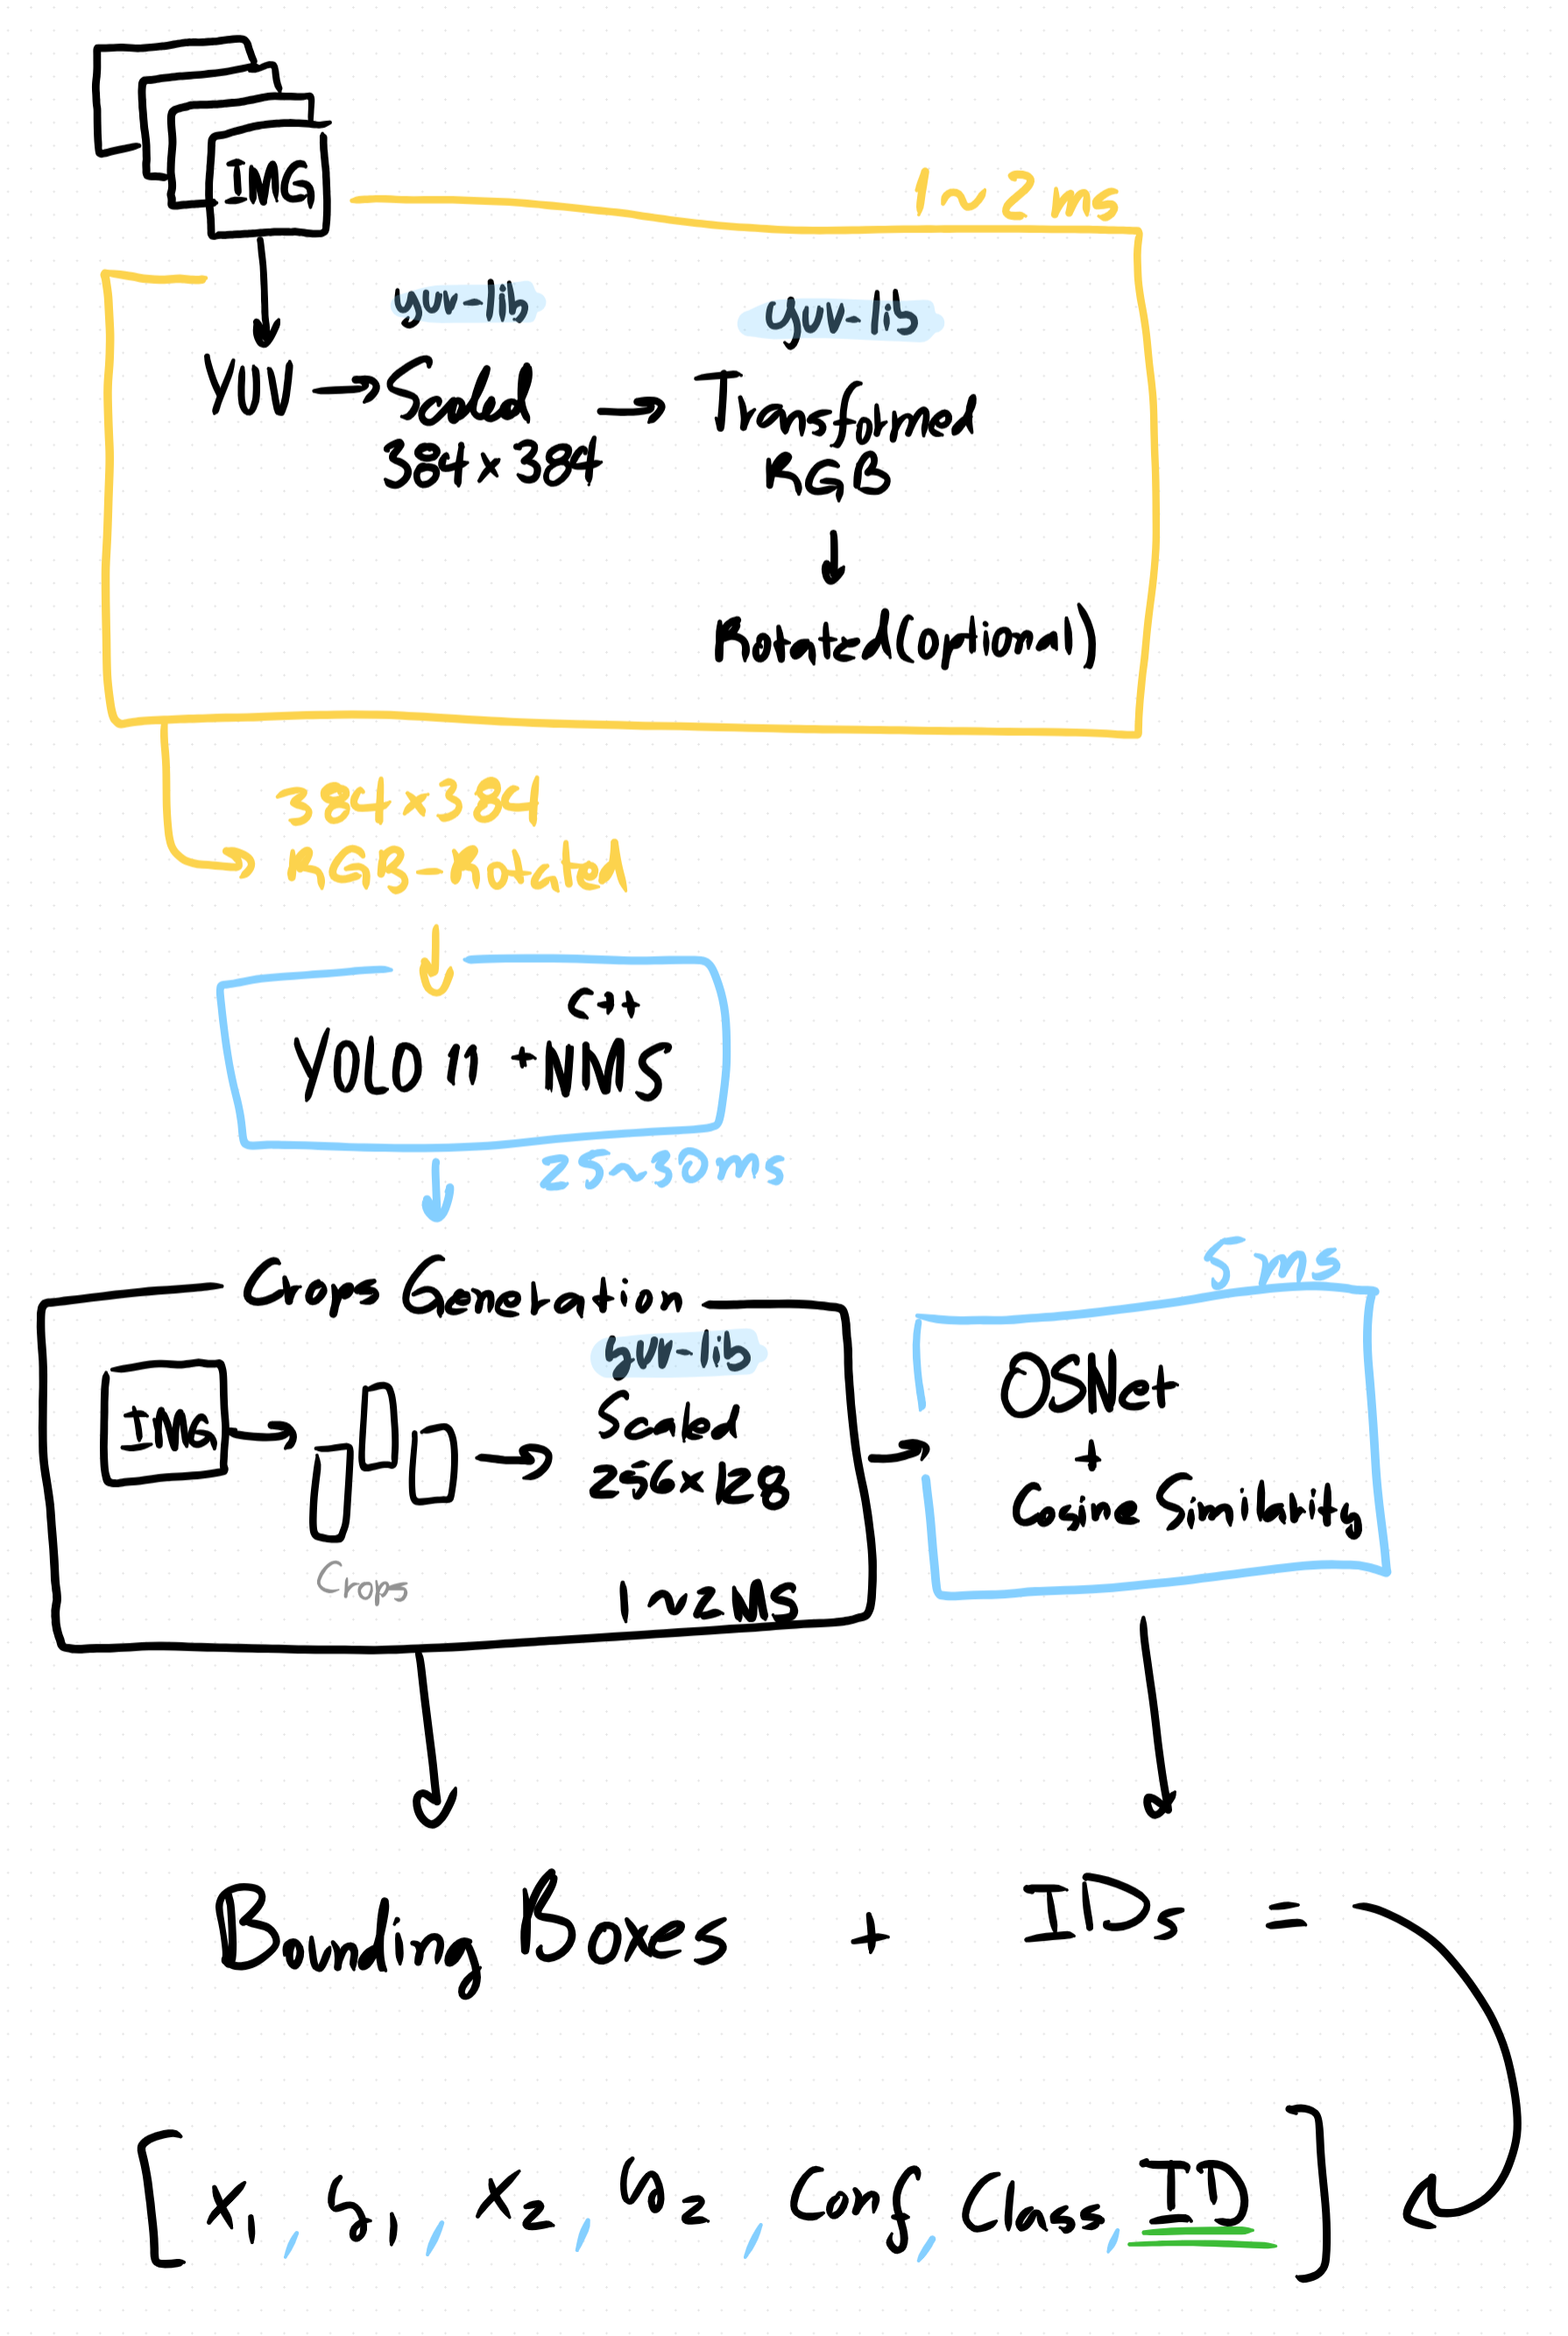 IMG
1~2 ms
yuv-lib
yuv-lib
YUV → Scaled → Transformed
384x384
RGB
Rotated(optional)
384x384
RGB-Rotated
C++
YOLO 11 + NMS
25~30ms
Crops Generation
5 ms
yuv-lib
IMG
Scaled
256x128
Crops
1~2MS
OSNet
+
Cosine Similarity
Bounding Boxes + IDs =
[X1, y1, X2, y2, Conf, Class, ID]